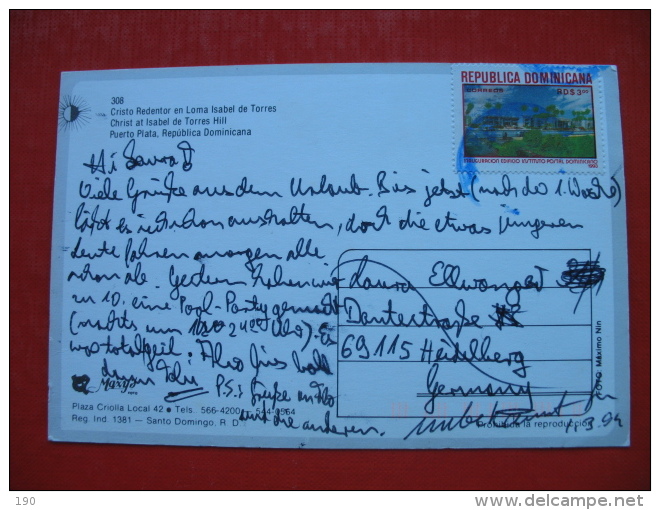 308
Cristo Redentor en Loma Isabel de Torres
Christ at Isabel de Torres Hill
Puerto Plata, República Dominicana
REPUBLICA DOMINICANA
CORREOS RD$3.00
INAUGURACION EDIFICIO INSTITUTO POSTAL DOMINICANO
Hi Laura!
Viele Grüße aus dem Urlaub. Bis jetzt (nach der 1. Woche)
läßt es sich schon aushalten, doch die etwas jüngeren
Leute fahren morgen alle
schon ab. Gestern haben wir
zu 10. eine Pool-Party gemacht
(nachts um 24 Uhr). Es
war total geil. Also bis bald
P.S.: Grüße an
und die anderen.
Laura Ellwanger
Dantestraße
69115 Heidelberg
Germany
unbekannt
1.3.94
Marys
Plaza Criolla Local 42 • Tels. 566-4200 544-0564
Reg. Ind. 1381 — Santo Domingo. R. D.
Prohibida la reproducción
FOTO: Máximo Nin
190